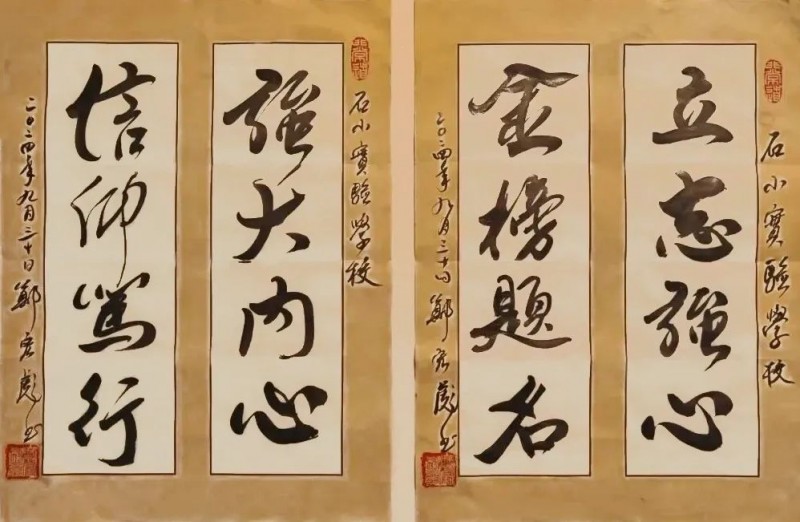 石小實驗學校
立志強心
金榜題名
二〇二四年九月三十日 鄭宏彪书
石小實驗學校
強大内心
信仰篤行
二〇二四年九月三十日 鄭宏彪书